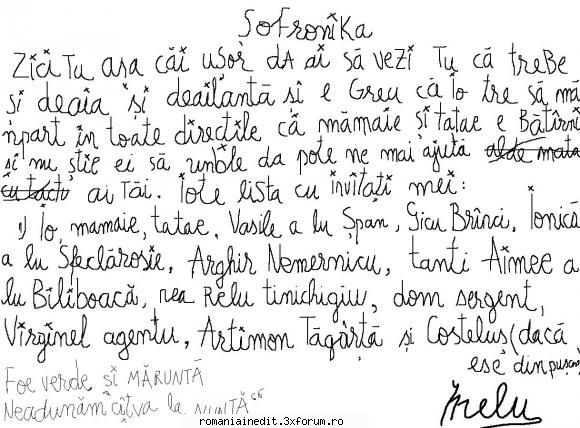 SoFroniKa
Zici Tu asa căi usor dA ai să vezi Tu că treBe
si deaia si deailantă si e Greu că Io tre să mă
npart în toate directile că mămaie si tatae e Bătîrni
si nu stie ei să unble da pote ne mai ajută alde mata
cu tactu ai tăi. Iote lista cu invitati mei:
1) Io, mamaie, tatae, Vasile a lu Span, Gicu Brînci, Ionică
a lu Sfeclărosie, Arghir Nemernicu, tanti Aimee a
lu Biliboacă, nea Relu tinichigiu, dom sergent,
Virginel agentu, Artimon Tăgârță și Costelus (dacă
ese din puscări
Foe verde si MĂRUNTĂ
Neadunăm cîtva la NUNTĂ
Inelu
romaniainedit.3xforum.ro